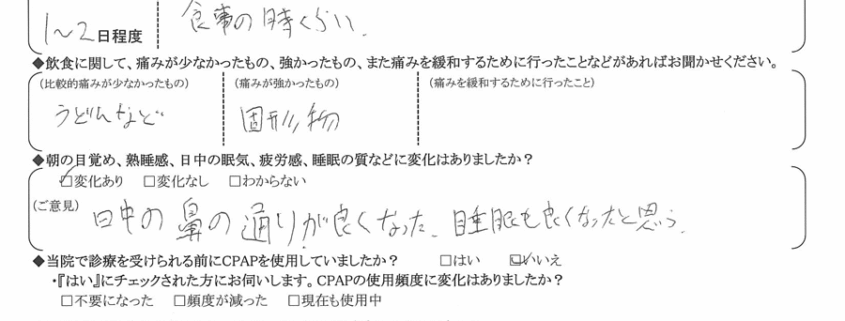 1〜2日程度 食事の時くらい.
◆飲食に関して、痛みが少なかったもの、強かったもの、また痛みを緩和するために行ったことなどがあればお聞かせください。
(比較的痛みが少なかったもの) (痛みが強かったもの) (痛みを緩和するために行ったこと)
うどんなど 固形物
◆朝の目覚め、熟睡感、日中の眠気、疲労感、睡眠の質などに変化はありましたか?
☑変化あり □変化なし □わからない
(ご意見) 日中の鼻の通りが良くなった. 睡眠も良くなったと思う.
◆当院で診療を受けられる前にCPAPを使用していましたか? □はい ☑いいえ
・『はい』にチェックされた方にお伺いします。CPAPの使用頻度に変化はありましたか?
□不要になった □頻度が減った □現在も使用中